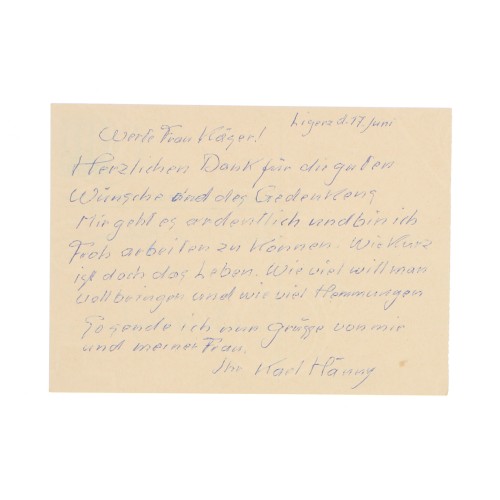 Ligerz d. 17. Juni
Werte Frau Käger!
Herzlichen Dank für die guten
Wünsche und des Gedenkens
Mir geht es ordentlich und bin ich
Froh arbeiten zu können. Wie Kurz
ist doch das Leben. Wie viel will man
vollbringen und wie viel Hemmungen
So sende ich nun Grüsse von mir
und meiner Frau.
Ihr Karl Hänny